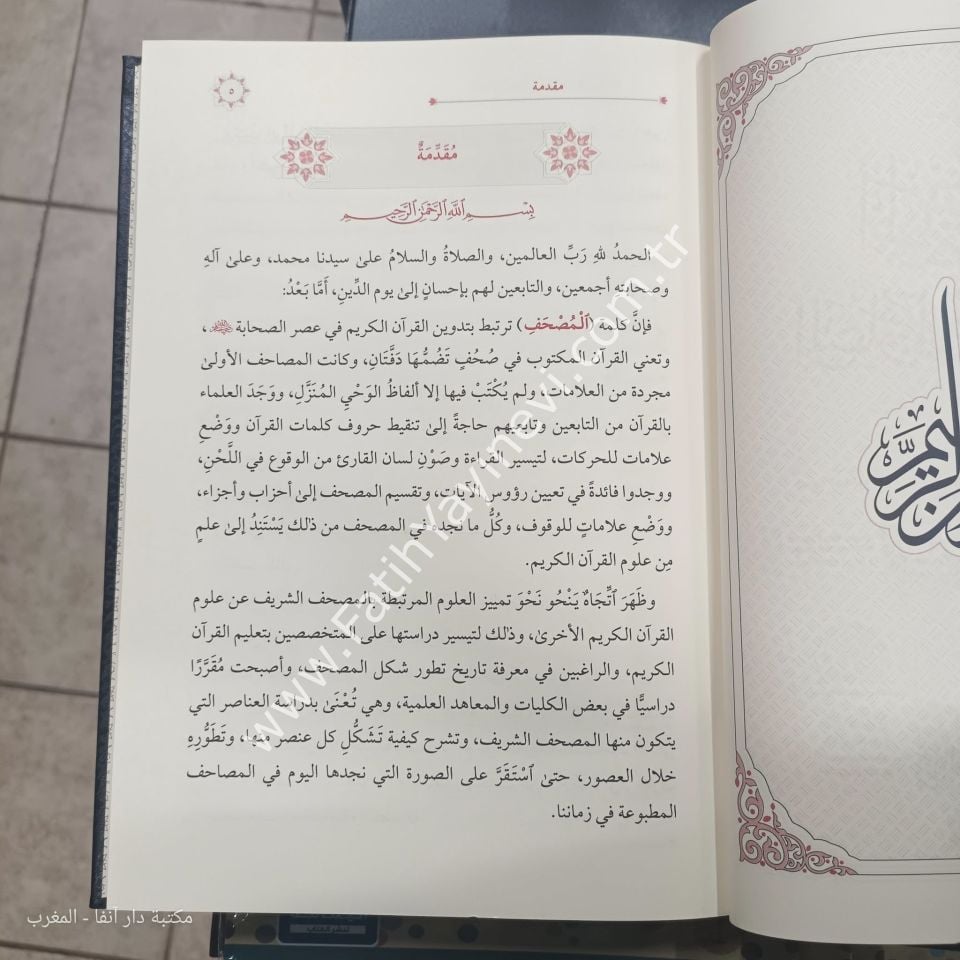 مقدمة
٥
مُقَدِّمَةٌ
بِسْمِ ٱللَّهِ ٱلرَّحْمَٰنِ ٱلرَّحِيمِ
الحمدُ للهِ رَبِّ العالمين، والصلاةُ والسلامُ علىٰ سيدنا محمد، وعلىٰ آلهِ
وصحابته أجمعين، والتابعين لهم بإحسانٍ إلىٰ يوم الدِّينِ، أَمَّا بَعْدُ:
فإنَّ كلمة (ٱلْمُصْحَفِ) ترتبط بتدوين القرآن الكريم في عصر الصحابة ﷺ،
وتعني القرآن المكتوب في صُحُفٍ تَضُمُّهَا دَفَّتَانِ، وكانت المصاحف الأولىٰ
مجردة من العلامات، ولم يُكْتَبْ فيها إلا ألفاظُ الوَحْيِ المُنَزَّلِ، ووَجَدَ العلماء
بالقرآن من التابعين وتابعيهم حاجةً إلىٰ تنقيط حروف كلمات القرآن ووَضْعِ
علامات للحركات، لتيسير القراءة وصَوْنِ لسان القارئ من الوقوع في اللَّحْنِ،
ووجدوا فائدةً في تعيين رؤوس الآيات، وتقسيم المصحف إلىٰ أحزاب وأجزاء،
ووَضْعِ علاماتٍ للوقوف، وكُلُّ ما نجده في المصحف من ذلك يَسْتَنِدُ إلىٰ علمٍ
مِن علوم القرآن الكريم.
وظَهَرَ ٱتِّجَاهٌ يَنْحُو نَحْوَ تمييز العلوم المرتبطة بالمصحف الشريف عن علوم
القرآن الكريم الأخرىٰ، وذلك لتيسير دراستها على المتخصصين بتعليم القرآن
الكريم، والراغبين في معرفة تاريخ تطور شكل المصحف، وأصبحت مُقَرَّرًا
دراسيًّا في بعض الكليات والمعاهد العلمية، وهي تُعْنَىٰ بدراسة العناصر التي
يتكون منها المصحف الشريف، وتشرح كيفية تَشَكُّلِ كل عنصر منها، وتَطَوُّرِهِ
خلال العصور، حتىٰ ٱسْتَقَرَّ على الصورة التي نجدها اليوم في المصاحف
المطبوعة في زماننا.
www.FatihYayinevi.com.tr
مكتبة دار آنفا - المغرب